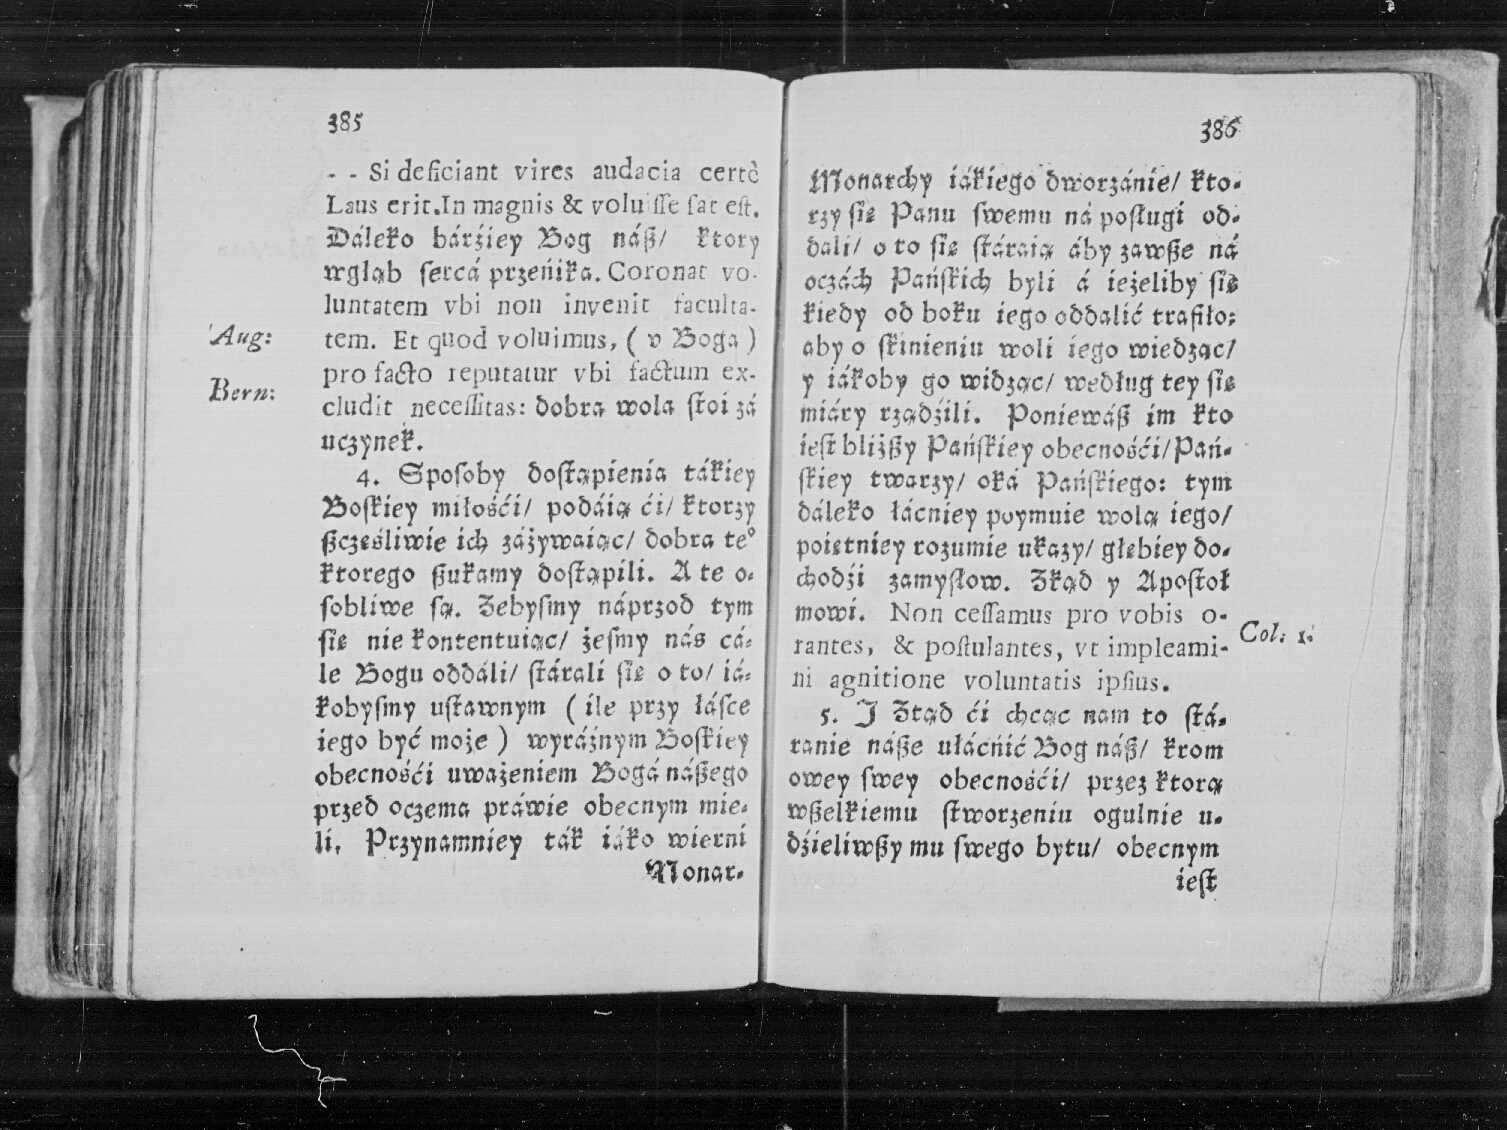 385
- - Si deficiant vires audacia certè
Laus erit. In magnis & voluisse sat est.
Dáleko bárźiey Bog náß/ ktory
wgłąb sercá przenika. Coronat vo-
luntatem vbi non invenit faculta-
'Aug: tem. Et quod voluimus, ( v Boga )
pro facto reputatur vbi factum ex-
Bern: cludit necessitas: dobra wola stoi zá
uczynek.
4. Sposoby dostąpienia tákiey
Boskiey miłośći/ podáią ći/ ktorzy
ßcześliwie ich záżywaiąc/ dobra te°
ktorego ßukamy dostąpili. A te o-
sobliwe są. Zebysmy náprzod tym
się nie kontentuiąc/ żesmy nás cá-
le Bogu oddáli/ stárali się o to/ iá-
kobysmy ustawnym ( ile przy łásce
iego być może ) wyráźnym Boskiey
obecnośći uważeniem Bogá náßego
przed oczema práwie obecnym mie-
li, Przynamniey ták iáko wierni
Monar-
386
Monarchy iákiego dworzánie/ kto-
rzy się Panu swemu ná posługi od-
dali/ o to się stáraią áby zawße ná
oczách Pańskich byli á ieżeliby się
kiedy od boku iego oddalić trafiło;
aby o skinieniu woli iego wiedząc/
y iákoby go widząc/ według tey się
miáry rządźili. Poniewáß im kto
iest bliżßy Pańskiey obecnośći/ Pań-
skiey twarzy/ oká Pańskiego: tym
dáleko łácniey poymuie wolą iego/
poiętniey rozumie ukazy/ głębiey do-
chodźi zamysłow. Zkąd y Apostoł
mowi. Non cessamus pro vobis o-
rantes, & postulantes, vt impleami- Col: 1.
ni agnitione voluntatis ipsius.
5. I Ztąd ći chcąc nam to stá-
ranie náße ułácnić Bog náß/ krom
owey swey obecnośći/ przez ktorą
wßelkiemu stworzeniu ogulnie u-
dźieliwßy mu swego bytu/ obecnym
iest